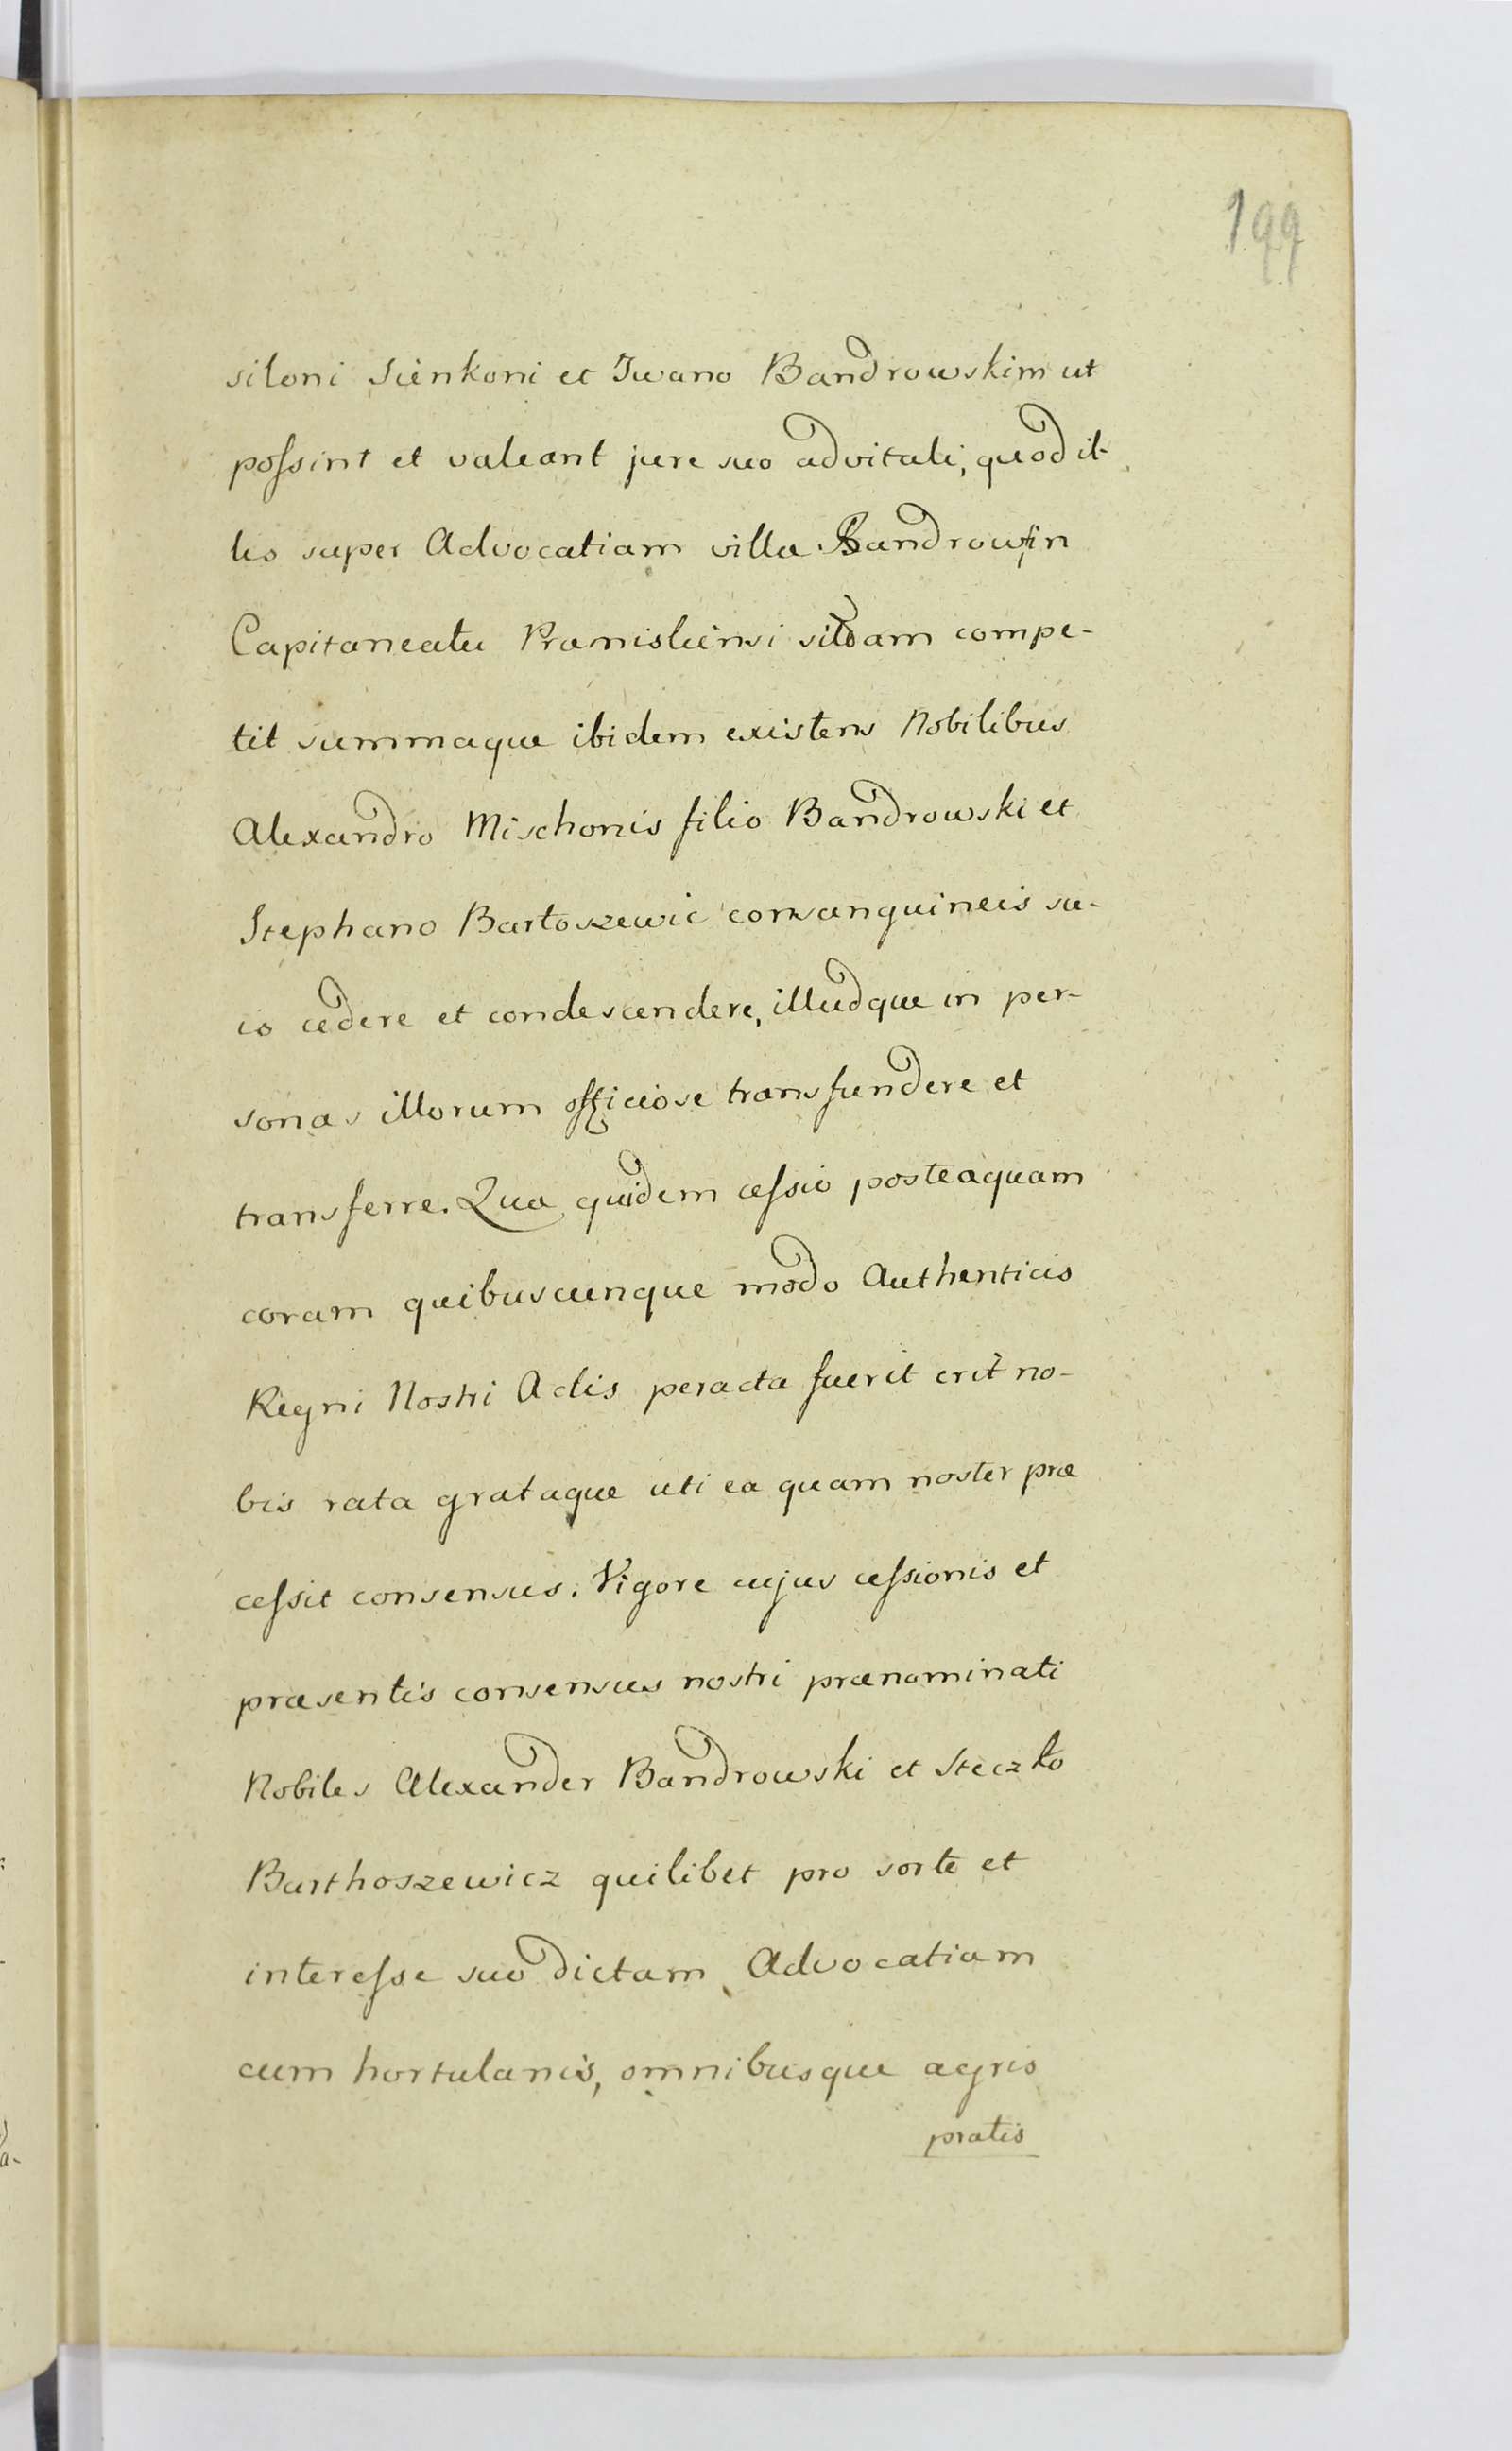 199
siloni Sienkoni et Iwano Bandrowskim ut
possint et valeant jure suo advitali, quod il-
lis super Advocatiam villa Bandrow in
Capitaneatu Pramisliensi sitam compe-
tit summaque ibidem existens Nobilibus
Alexandro Mischonis filio Bandrowski et
Stephano Bartoszewic consanguineis su-
is cedere et condescendere, illudque in per-
sonas illorum officiose transfundere et
transferre. Qua quidem cessio posteaquam
coram quibuscunque modo Authenticis
Regni Nostri Actis peracta fuerit erit no-
bis rata grataque uti ea quam noster præ
cessit consensus. Vigore cujus cessionis et
præsentis consensus nostri prænominati
Nobiles Alexander Bandrowski et Steczko
Barthoszewicz quilibet pro sorte et
interesse suo dictam Advocatiam
cum hortulanis, omnibusque agris
pratis